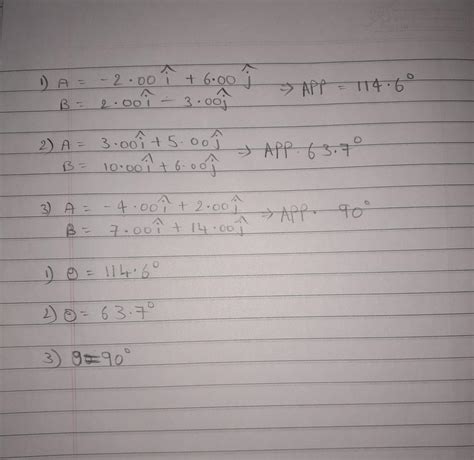 1) A = -2.00î + 6.00ĵ
B = 2.00î - 3.00ĵ ⇒ APP = 114.6°
2) A = 3.00î + 5.00ĵ
B = 10.00î + 6.00ĵ ⇒ APP. 63.7°
3) A = -4.00î + 2.00ĵ
B = 7.00î + 14.00ĵ ⇒ APP. 90°
1) θ = 114.6°
2) θ = 63.7°
3) θ = 90°